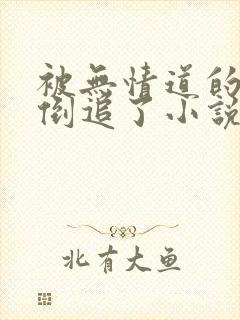 被無情道的
倒追了小說
北有大鱼